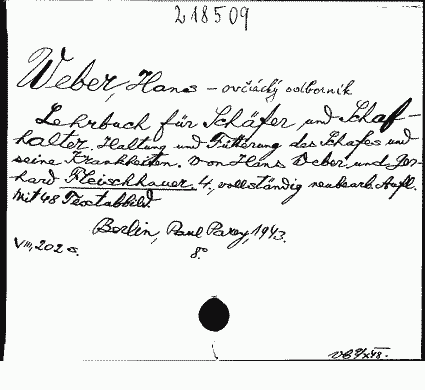 218509
Weber, Hans – ovčácký odborník
Lehrbuch für Schäfer und Schaf-
halter. Haltung und Fütterung des Schafes und
seine Krankheiten. Von Hans Weber und Ger-
hard Fleischhauer. 4., vollständig neubearb. Aufl.
Mit 48 Textabbild
Berlin, Paul Parey, 1943.
VIII, 202 s. 8°